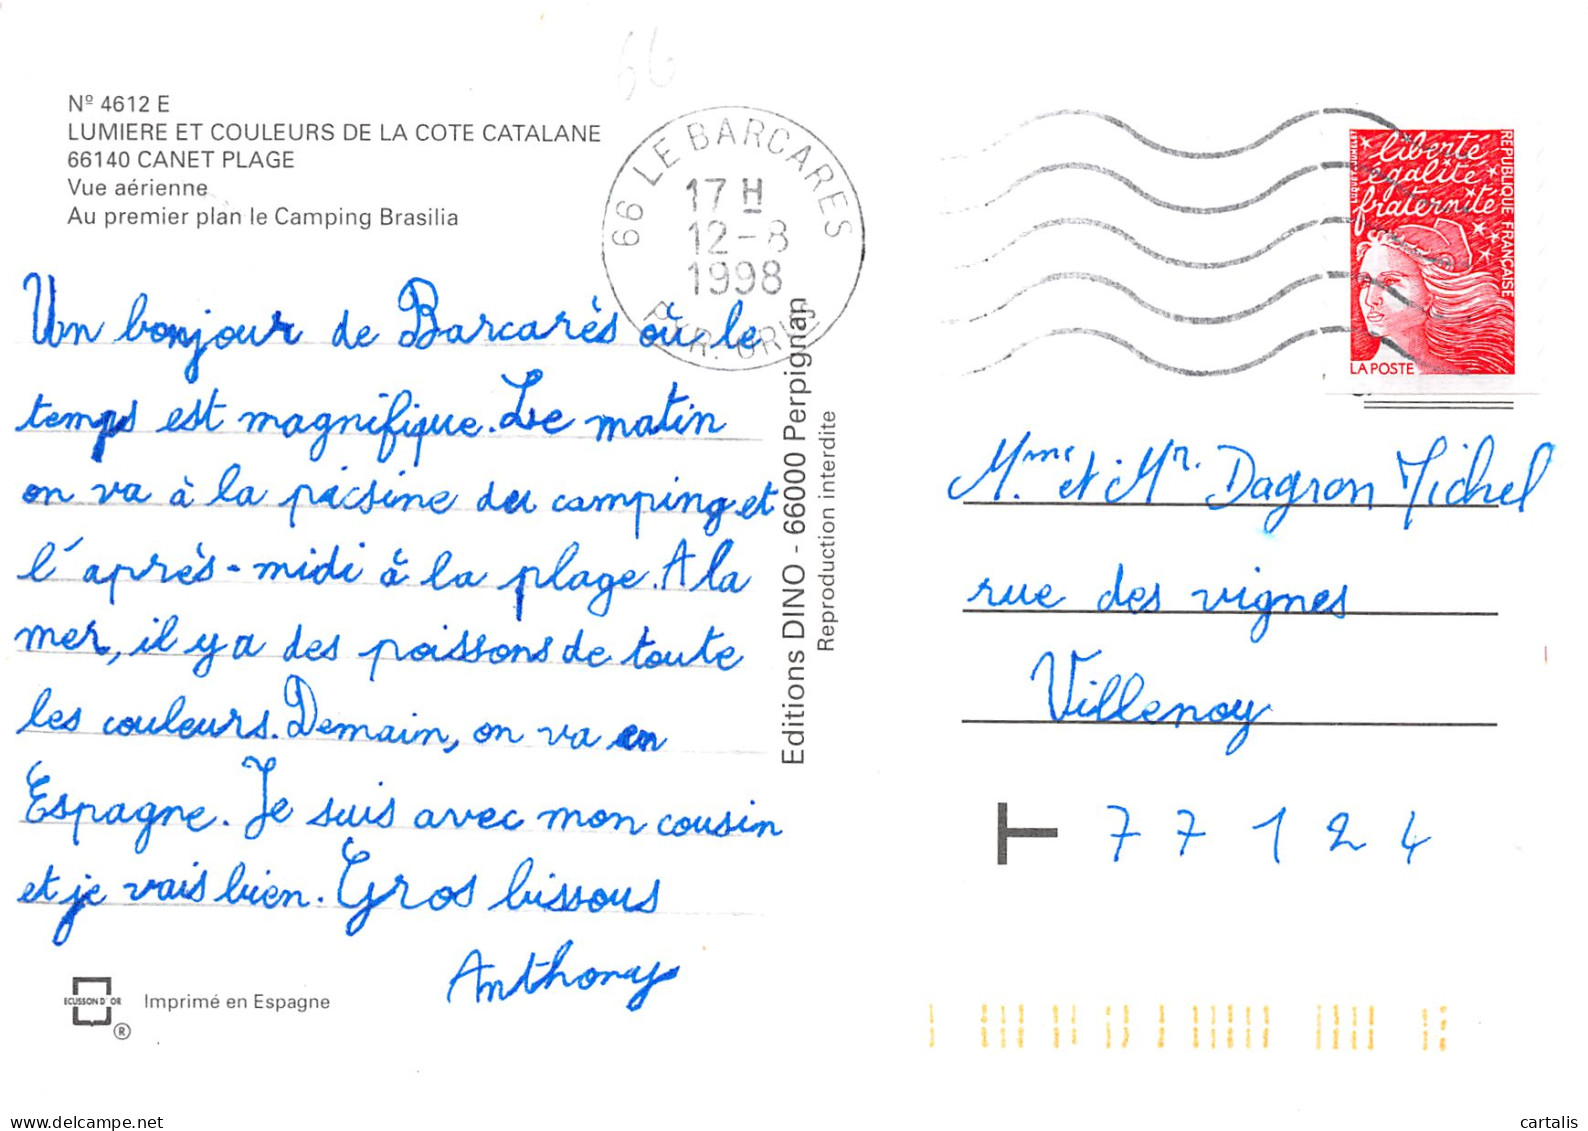 Nº 4612 E
LUMIERE ET COULEURS DE LA COTE CATALANE
66140 CANET PLAGE
Vue aérienne
Au premier plan le Camping Brasilia
66
66 LE BARCARES
17 H
12-8
1998
Un bonjour de Barcarès où le
temps est magnifique. Le matin
on va à la picsine du camping et
l'après-midi à la plage. A la
mer, il y a des poissons de toute
les couleurs. Demain, on va en
Espagne. Je suis avec mon cousin
et je vais bien. Gros bissous
Anthony
ECUSSON D'OR
®
Imprimé en Espagne
Editions DINO - 66000 Perpignan
Reproduction interdite
liberté
égalité
fraternité
REPUBLIQUE FRANÇAISE
LUQUET-JUMELET
LA POSTE
Mme et Mr. Dagron Michel
rue des vignes
Villenoy
77124
delcampe.net
cartalis